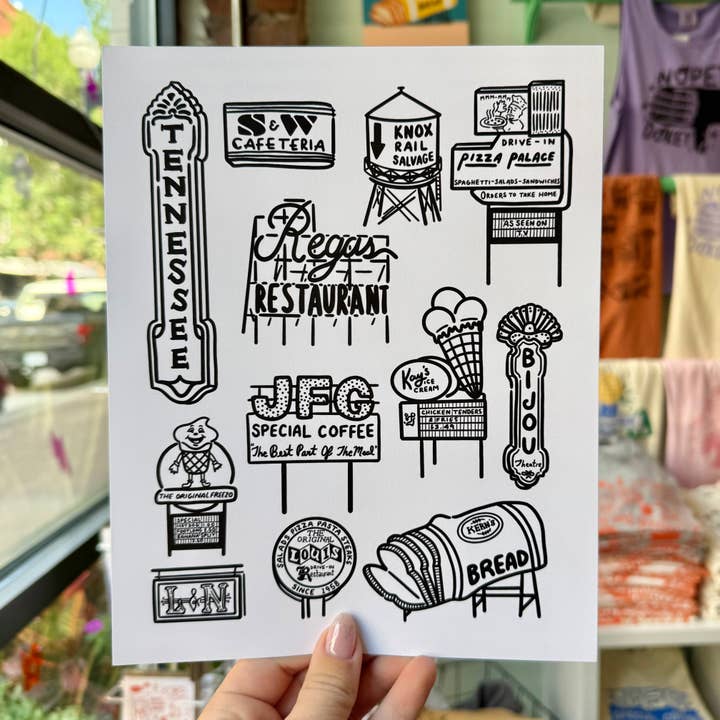 TENNESSEE
S & W
CAFETERIA
KNOX
RAIL
SALVAGE
MMM-MM
DRIVE-IN
PIZZA PALACE
SPAGHETTI-SALADS-SANDWICHES
ORDERS TO TAKE HOME
AS SEEN ON
TV
Regas
RESTAURANT
Kay's
ICE
CREAM
CHICKEN TENDERS
& FRIES
$3.49
BIJOU
Theatre
JFG
SPECIAL COFFEE
"The Best Part Of The Meal"
THE ORIGINAL FREEZO
SPECIAL
L&N
SALADS PIZZA PASTA STEAKS
THE
ORIGINAL
LOUIS
DRIVE-IN
Restaurant
SINCE 1958
KERN'S
BREAD
NOPE